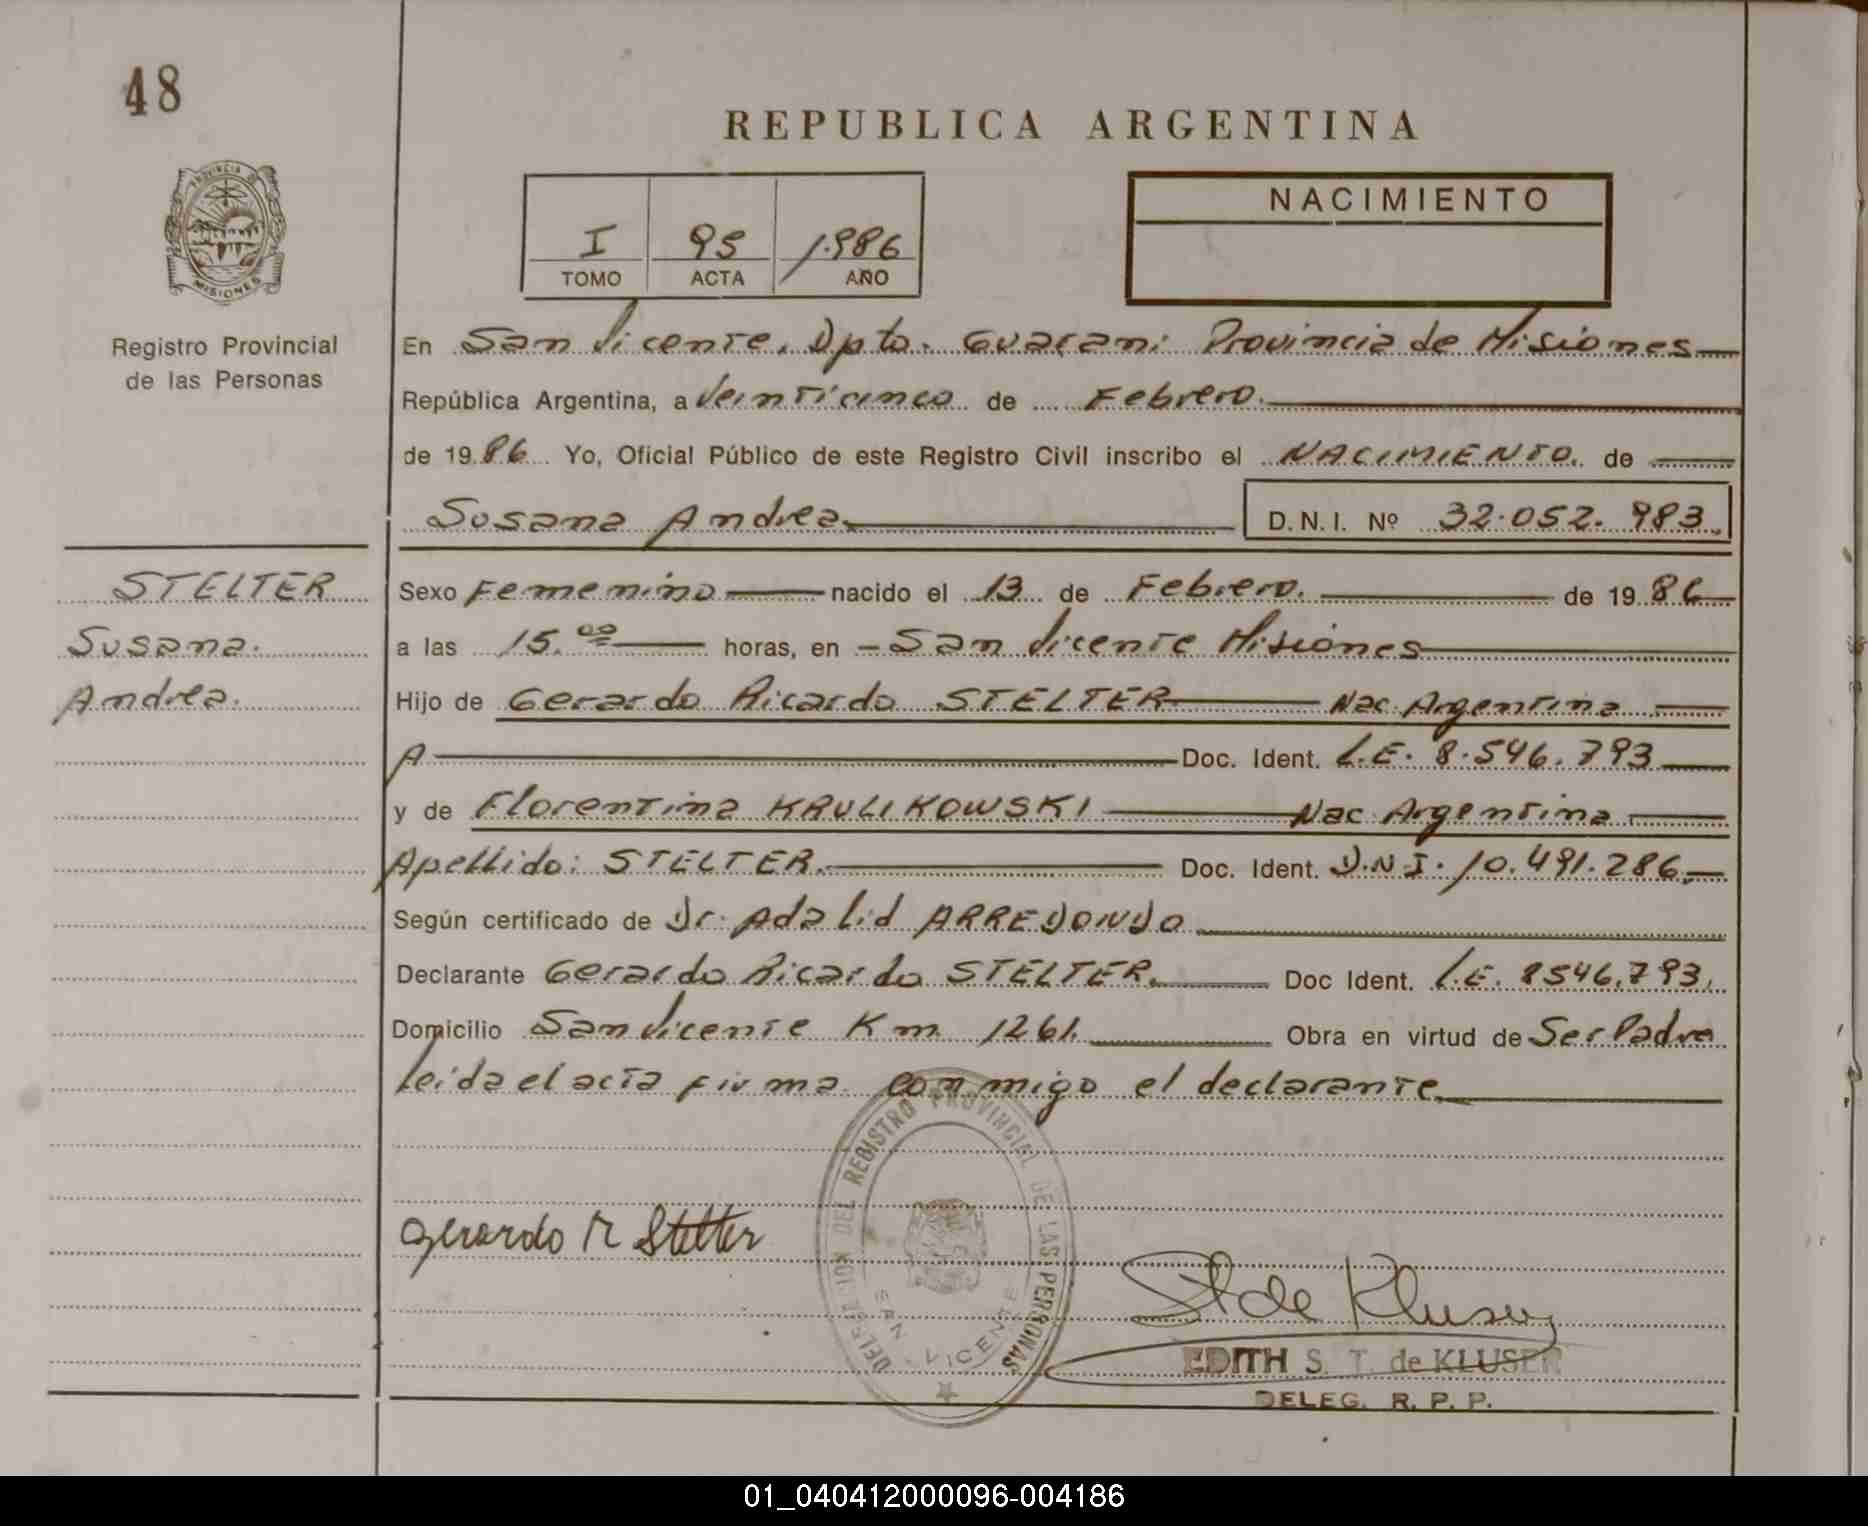 48
REPUBLICA ARGENTINA
NACIMIENTO
I 95 1.986
TOMO ACTA AÑO
PROVINCIA DE
MISIONES
Registro Provincial
de las Personas
En San Vicente. Dpto. Guarani Provincia de Misiones
República Argentina, a Veinticinco de Febrero.
de 1986 Yo, Oficial Público de este Registro Civil inscribo el NACIMIENTO. de
Susana Andrea D.N.I. Nº 32.052.983
STELTER
Susana.
Andrea.
Sexo Femenino nacido el 13 de Febrero. de 1986
a las 15.00 horas, en - San Vicente Misiones
Hijo de Gerardo Ricardo STELTER Nac. Argentina
A Doc. Ident. L.E. 8.546.793
y de Florentina KRULIKOWSKI Nac Argentina
Apellido: STELTER. Doc. Ident. D.N.I. 10.491.286.
Según certificado de Dr. Adalid ARREDONDO
Declarante Gerardo Ricardo STELTER. Doc Ident. L.E. 8546.793.
Domicilio San Vicente Km 1261. Obra en virtud de Ser Padre
leida el acta firma conmigo el declarante
DELEGACION DEL REGISTRO PROVINCIAL DE LAS PERSONAS
SAN VICENTE
Gerardo R Stelter
St de Kluser
EDITH S. T. de KLUSER
DELEG. R. P. P.
01_040412000096-004186